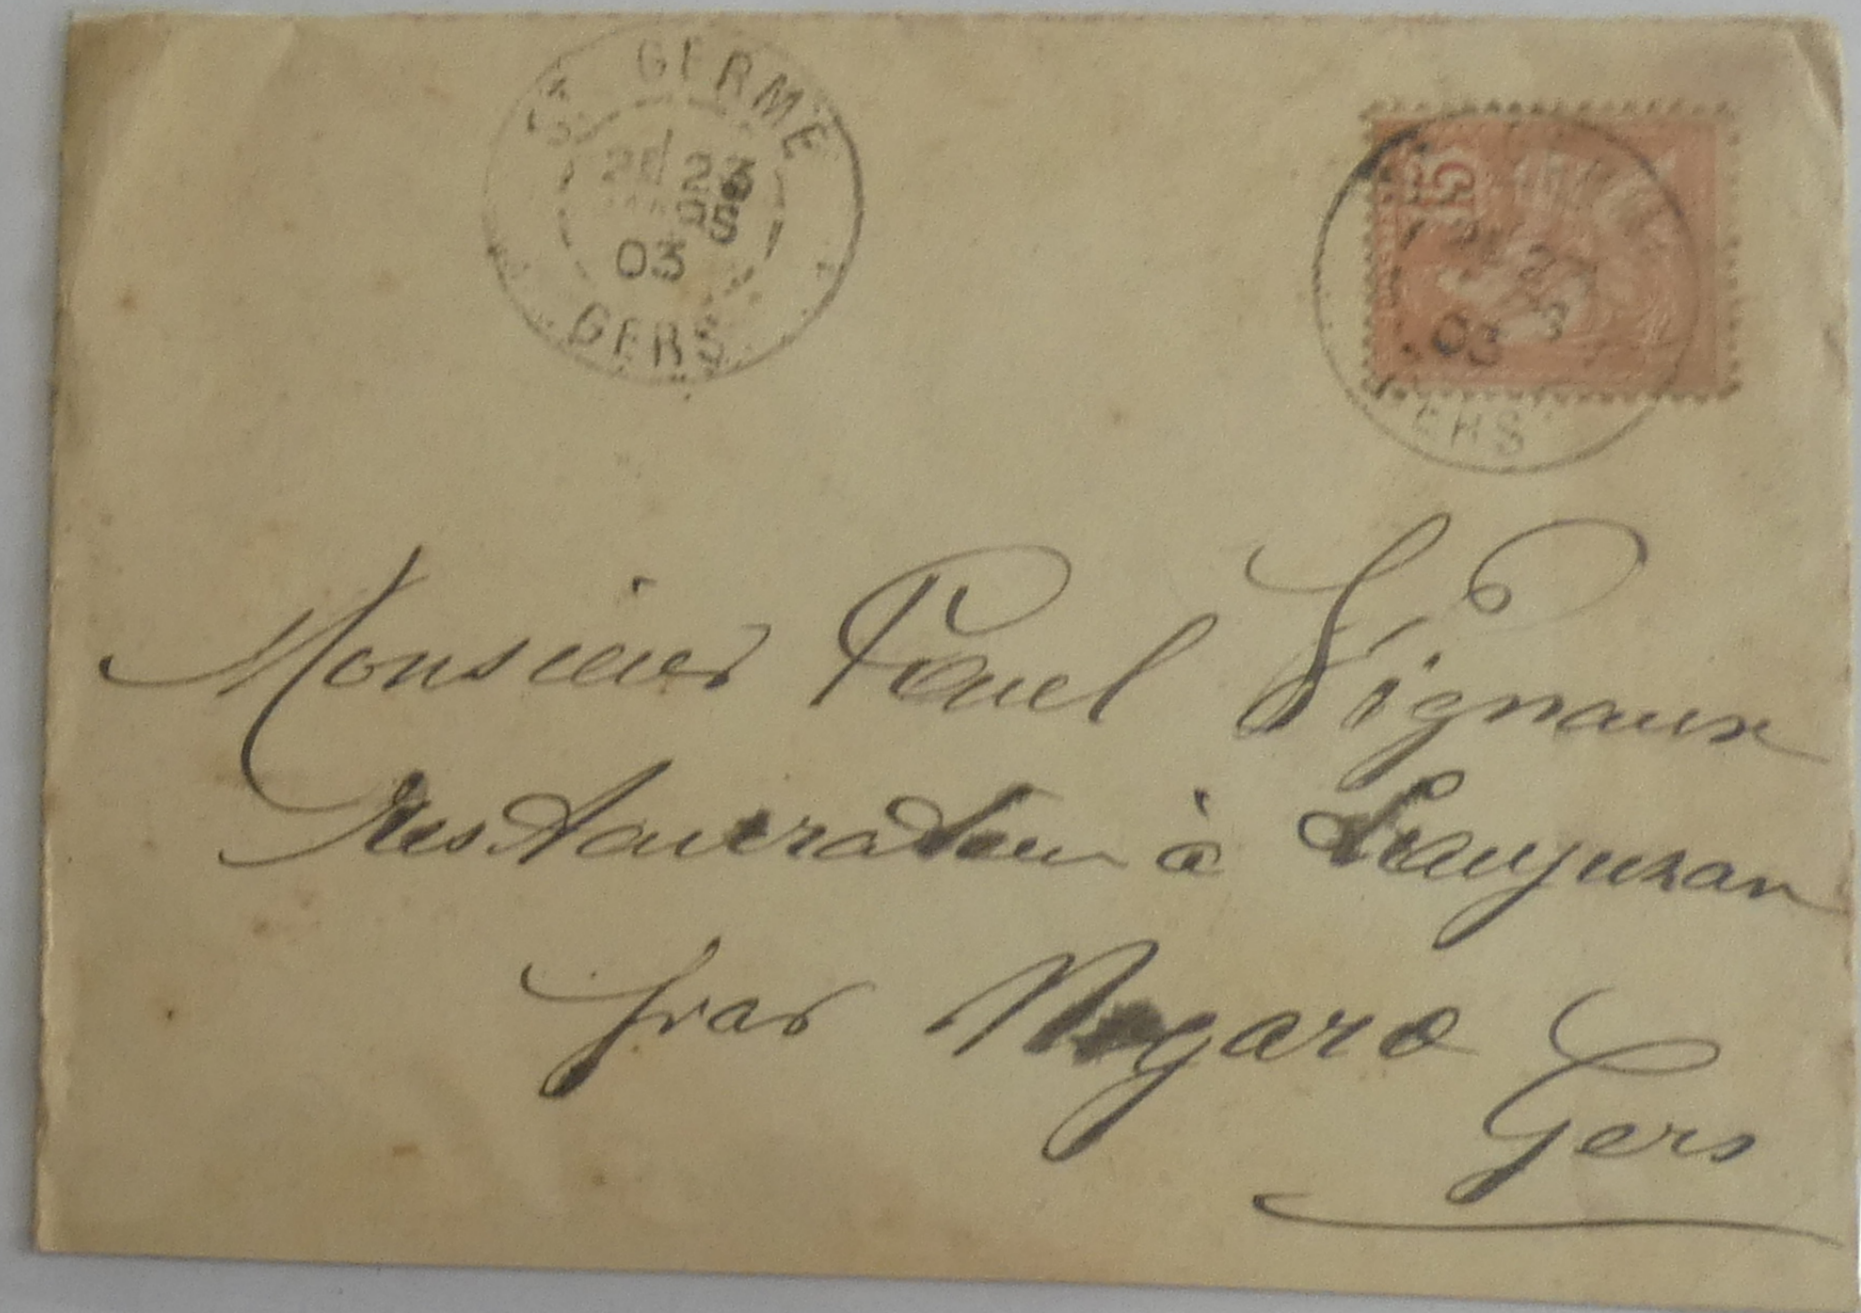 ST GERME
2E 23
05
03
GERS
15
2E 23
3
03
GERS
Monsieur Paul Vignaux
restaurateur à Laujuzan
par Nogaro
Gers